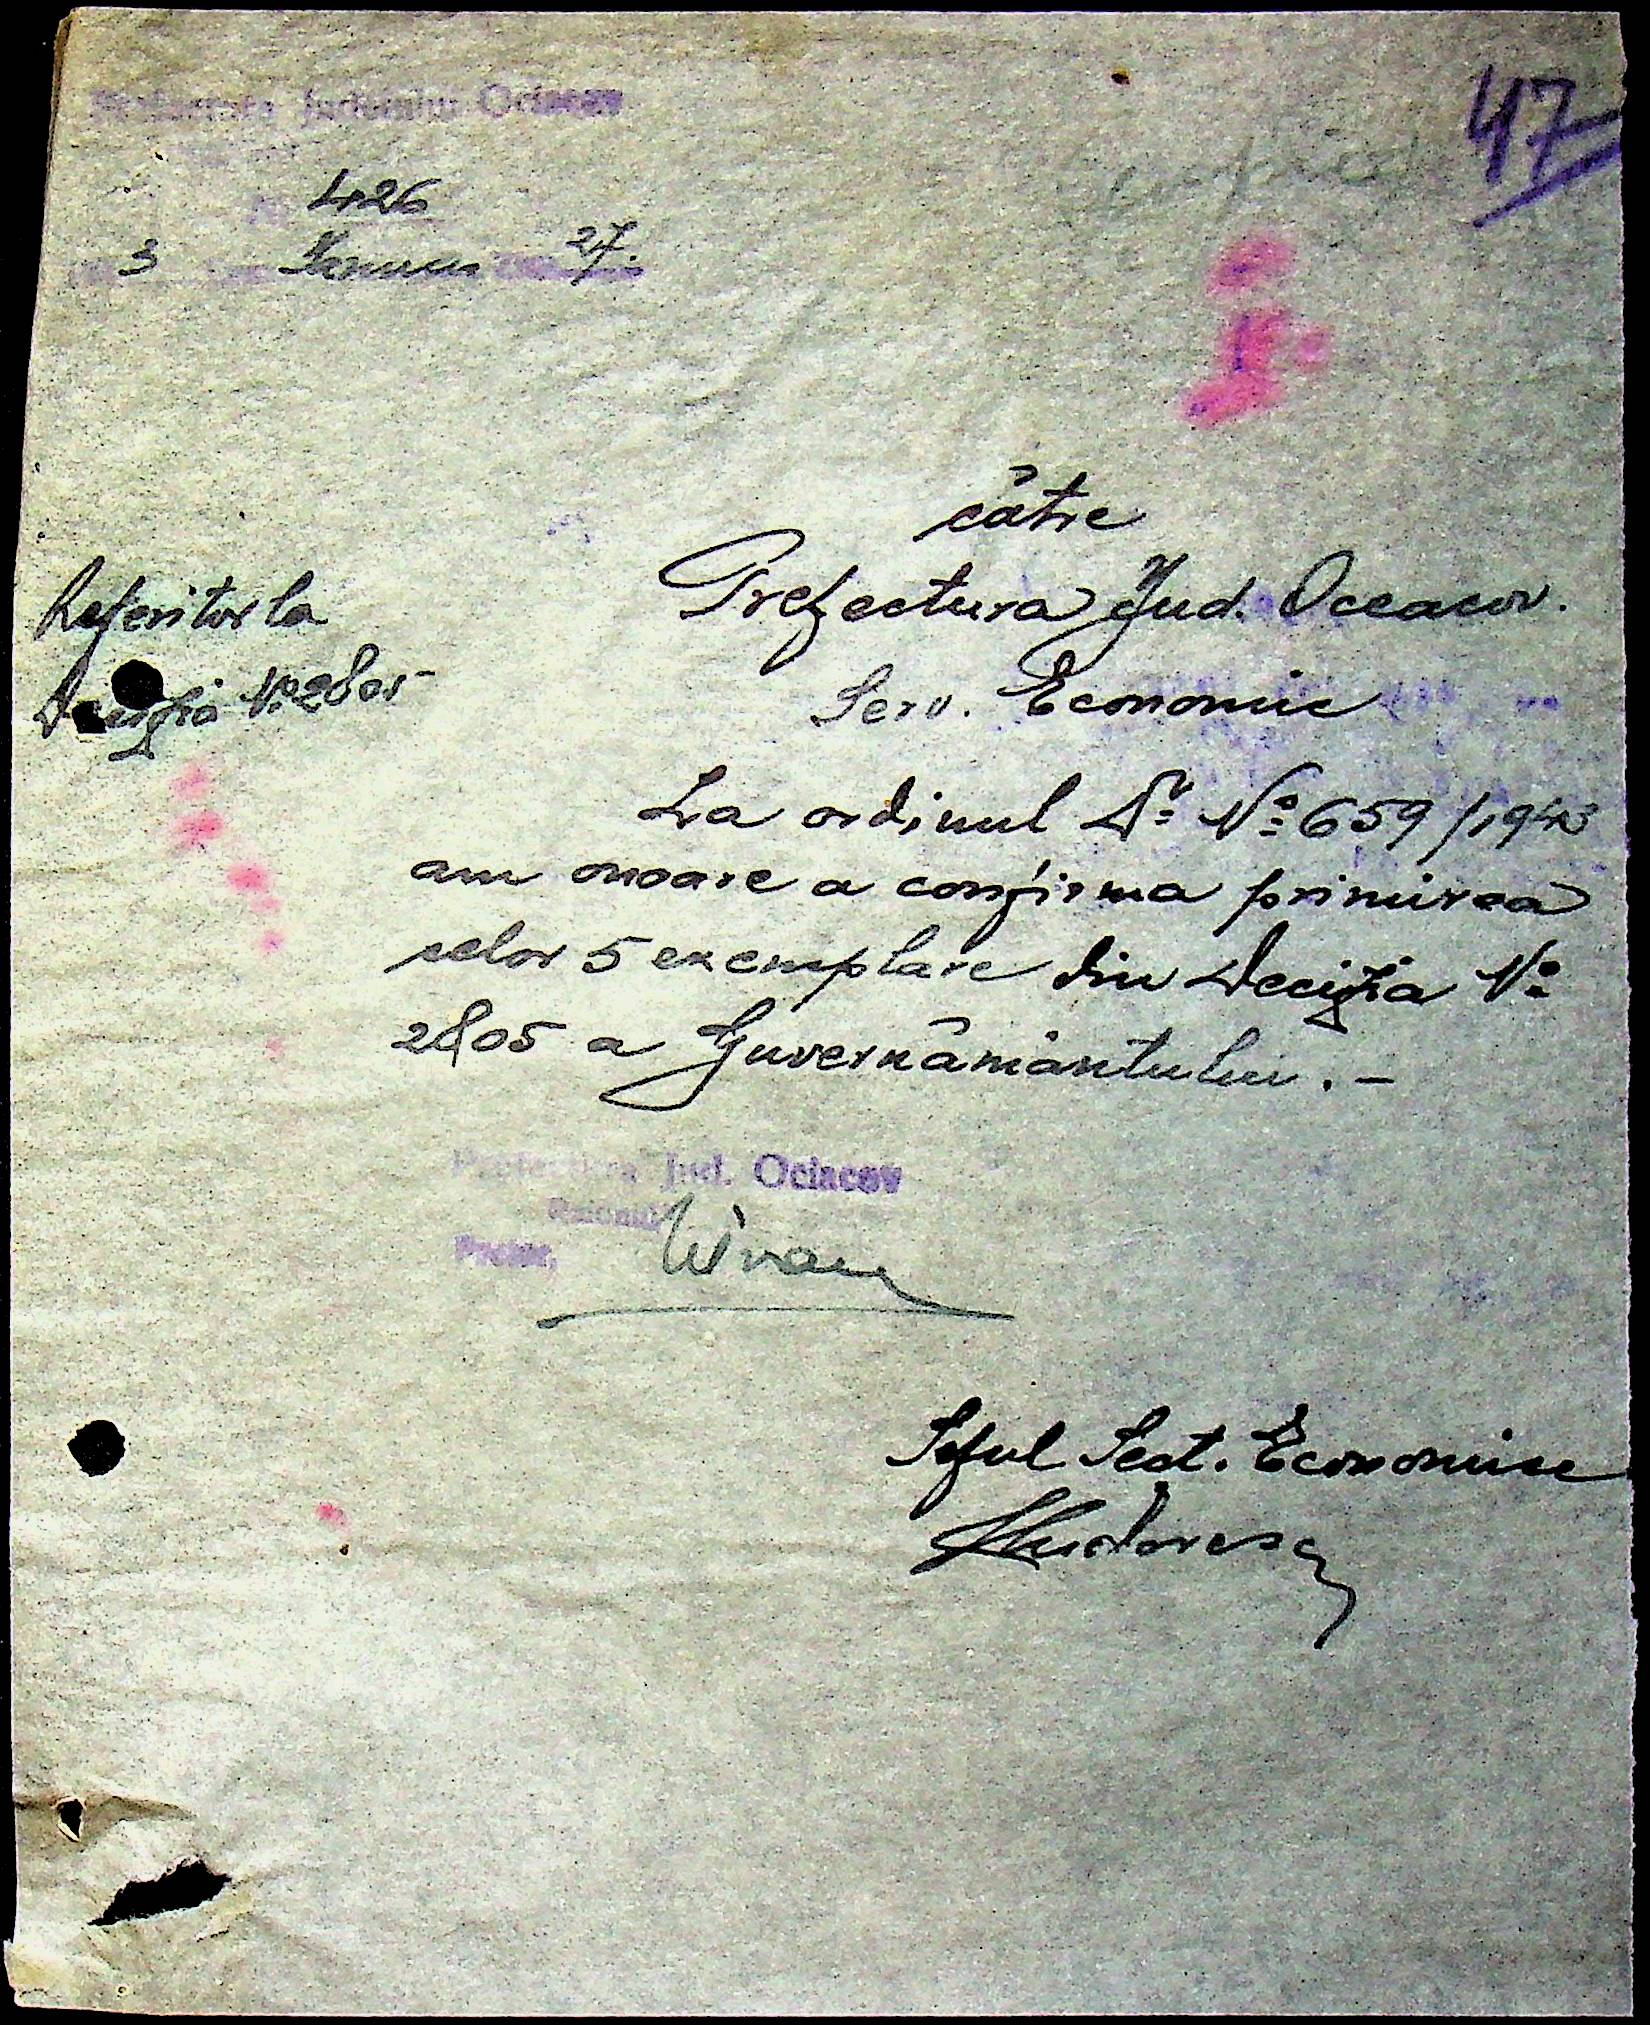 Prefectura Județului Ociacov
47
No 426
3 Ianuarie 27.
către
Prefectura Jud. Oceacov.
Serv. Economic
Referitor la
Decizia No 2805
La ordinul Dv. No 659/1943
am onoare a confirma primirea
celor 5 exemplare din Decizia No
2805 a Guvernământului. –
Prefectura Jud. Ociacov
Raionul
Pretor,
Șeful Sect. Economice